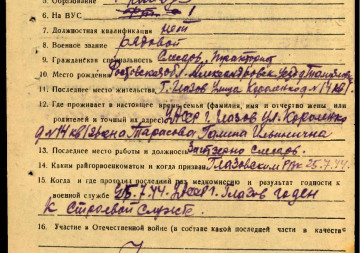 5. Образование
6. На ВУС № 1
7. Должностная квалификация нет
8. Военное звание рядовой
9. Гражданская специальность Слесарь, тракторист
10. Место рождения Ростовская обл. Александровск.
11. Последнее место жительства, г. Глазов улица Короленко д № 14 кв 1.
12. Где проживает в настоящее время семья (фамилия, имя и отчество жены или
родителей и точный их адрес) УАССР г. Глазов ул. Короленко
д № 14 кв 1 жена Тарасова Галина Ильинична
13. Последнее место работы и должность слесарь.
14. Каким райгорвоенкоматом и когда призван Глазовским РВК 25.7.44.
15. Когда и где проходил последний раз медкомиссию и результат годности к
военной службе 25.7.44. УАССР г. Глазов годен
к строевой службе.
16. Участие в Отечественной войне (в составе какой последней части и в качестве